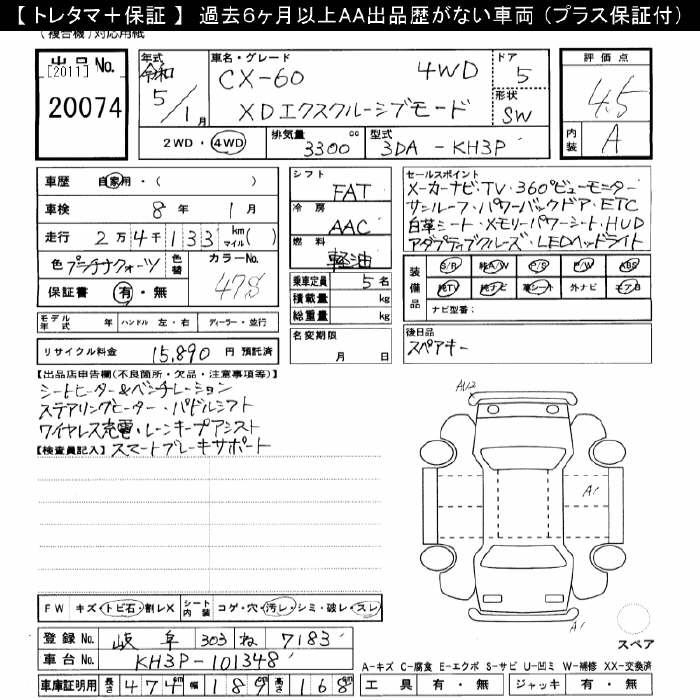 【 トレタマ＋保証 】 過去6ヶ月以上AA出品歴がない車両（プラス保証付）
(複合機)対応用紙
出品 No. [2011] 20074
年式 令和 5/1月
車名・グレード CX-60 4WD
XDエクスクルーシブモード
ドア 5
形状 SW
評価点 4.5
内装 A
2WD・4WD 排気量 3300 cc 型式 3DA - KH3P
車歴 自家用・( )
車検 8年 1月
走行 2万4千133 km マイル( )
色 プラチナクォーツ 色替 カラーNo. 47S
保証書 有・無
モデル年式 年 ハンドル 左・右 ディーラー・並行
リサイクル料金 15,890 円 預託済
シフト FAT
冷房 AAC
燃料 軽油
乗車定員 5 名
積載量 kg
総重量 kg
名変期限 月 日
セールスポイント
メーカーナビ・TV・360°ビューモニター
サンルーフ・パワーバックドア・ETC
白革シート・メモリパワーシート・HUD
アダプティブクルーズ・LEDヘッドライト
装備品 S/R 純A/W P/S P/W ABS
純TV 純ナビ 革シート 外ナビ エアB
ナビ型番：
後日品
スペアキー
【出品店申告欄(不良箇所・欠品・注意事項等)】
シートヒーター&ベンチレーション
ステアリングヒーター・パドルシフト
ワイヤレス充電・レーンキープアシスト
【検査員記入】 スマートブレーキサポート
AU2
A1
A1
スペア
FW キズ・トビ石・割レX シート内装 コゲ・穴・汚レ・シミ・破レ・スレ
登録No. 岐阜 303 ね 7183
車台No. KH3P-101348
車庫証明用 長さ 474cm 幅 189cm 高さ 168cm
A-キズ C-腐食 E-エクボ S-サビ U-凹ミ W-補修 XX-交換済
工具 有・無 ジャッキ 有・無